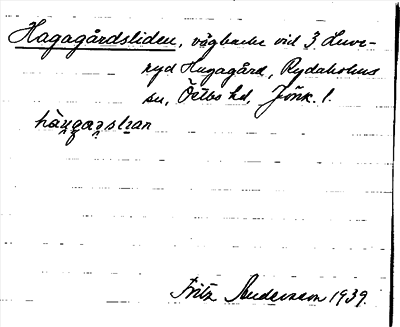 Hagagårdsliden, vägbacke vid 3 Luve-
ryd Hagagård, Rydaholms
sn, Östbo hd, Jönk. l.
Fritz Andersson 1939.